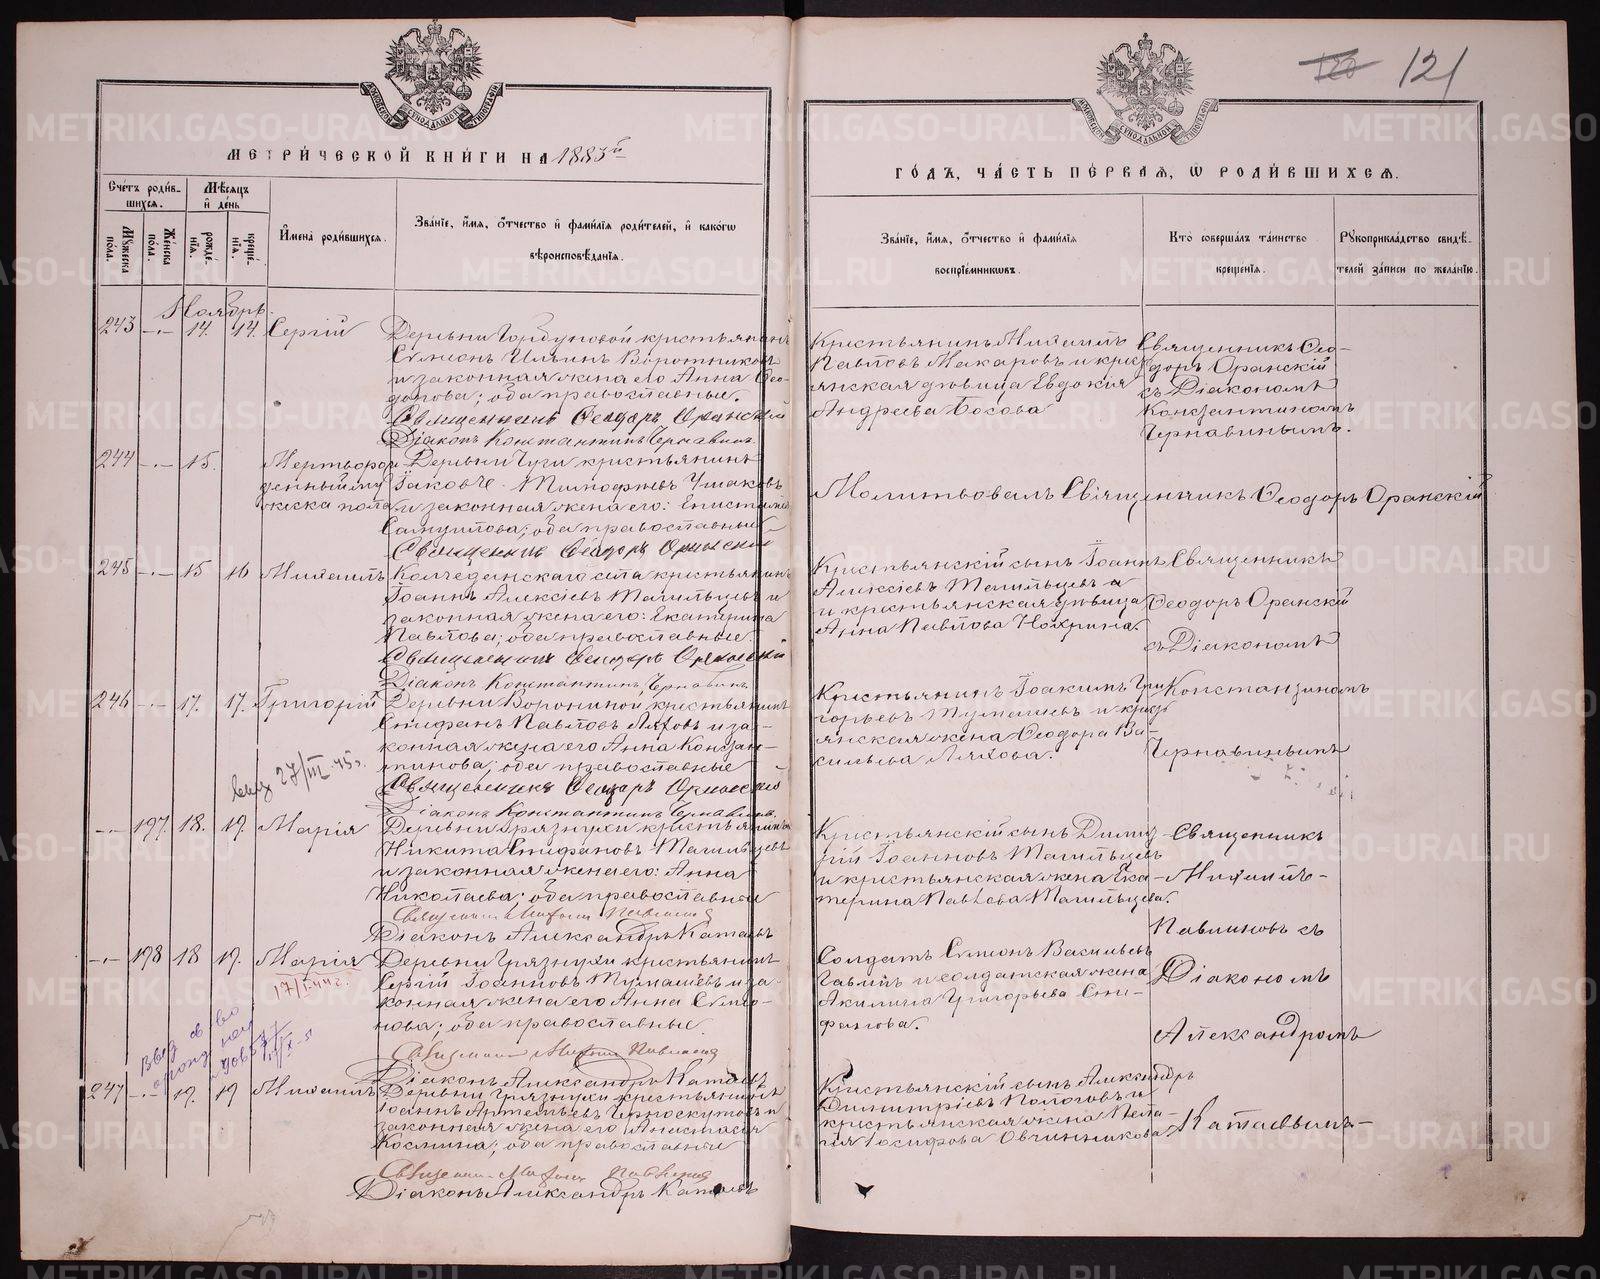 120 121
МЕТРИЧЕСКОЙ КНИГИ НА 1883й
ГОДЪ, ЧАСТЬ ПЕРВАЯ, Ѡ РОДИВШИХСЯ.
Счетъ родив-
шихся.
Мѣсяцъ
и день
Мужеска
пола.
Женска
пола.
рожде-
нія.
креще-
нія.
Имена родившихся.
Званіе, имя, отчество и фамилія родителей, и какогѡ
вѣроисповѣданія.
Званіе, имя, отчество и фамилія
воспріемниковъ.
Кто совершалъ таинство
крещенія.
Рукоприкладство свидѣ-
телей записи по желанію.
Ноябрь.
243 -"- 14. 14. Сергій
Деревни Горбуновой крестьянинъ
Симеонъ Ильинъ Воротниковъ
и законная жена его Анна Ѳео-
дорова; оба православные.
Священникъ Ѳеодоръ Оранскій
Діаконъ Константинъ Чернавинъ.
Крестьянинъ Михаилъ
Павловъ Макаровъ и крест
янская дѣвица Евдокія
Андреева Босова
Священникъ Ѳео-
доръ Оранскій
съ Діакономъ
Константиномъ
Чернавинымъ.
244 -"- 15. Мертворож
денный
жеска пола
Деревни Чуги крестьянинъ
Іаковъ Тимофѣевъ Ушаковъ
и законная жена его:
Самуилова; оба православные
Священникъ Ѳеодоръ Оранскій
Молитвовалъ Священникъ Ѳеодоръ Оранскій
245 -"- 15 16 Михаилъ
Колчеданскаго села крестьянинъ
Іоаннъ Алексіевъ Тагильцевъ и
законная жена его: Екатерина
Павлова; оба православные.
Священникъ Ѳеодоръ Оранскій
Діаконъ Константинъ Чернавинъ
Крестьянскій сынъ Іоаннъ
Алексіевъ Тагильцевъ а
и крестьянская дѣвица
Анна Павлова Нохрина.
Священникъ
Ѳеодоръ Оранскій
съ Діакономъ
Константиномъ
Чернавинымъ
246 -"- 17. 17. Григорій
Деревни Ворониной крестьянинъ
Стефанъ Павловъ Ляховъ и за-
конная жена его Анна Констан-
тинова; оба православные
Священникъ Ѳеодоръ Оранскій
Діаконъ Константинъ Чернавинъ.
Крестьянинъ Іоакимъ Гри
горьевъ Тумашевъ и крест
янская жена Ѳеодора Ва-
сильева Ляхова.
27/III 45г.
-"- 197. 18. 19. Марія
Деревни Грязнухи крестьянинъ
Никита Стефановъ Тагильцевъ
и законная жена его: Анна
Николаева; оба православные
Священникъ Михаилъ Павлиновъ
Діаконъ Александръ Катаевъ
Крестьянскій сынъ Дими-
трій Іоанновъ Тагильцевъ
и крестьянская жена Ека-
терина Павлова Тагильцева.
Священникъ
Михаилъ
Павлиновъ съ
Діакономъ
Александромъ
Катаевымъ
-"- 198 18 19. Марія
Деревни Грязнухи крестьянинъ
Сергій Іоанновъ Тумашевъ и за-
конная жена его Анна Симео-
нова; оба православные.
Священникъ Михаилъ Павлиновъ
Діаконъ Александръ Катаевъ
Солдатъ Симеонъ Васильевъ
и солдатская жена
Акилина Григорьева Сте-
фанова.
247 -"- 19. 19 Михаилъ
Деревни Грязнухи крестьянинъ
Іоаннъ Артемьевъ Черноскутовъ и
законная жена его Анастасія
Космина; оба православные
Священникъ Михаилъ Павлиновъ
Діаконъ Александръ Катаевъ
Крестьянскій сынъ Александръ
Димитріевъ Пологовъ и
крестьянская жена Пела-
гія Іосифова Овчинникова
METRIKI.GASO-URAL.RU